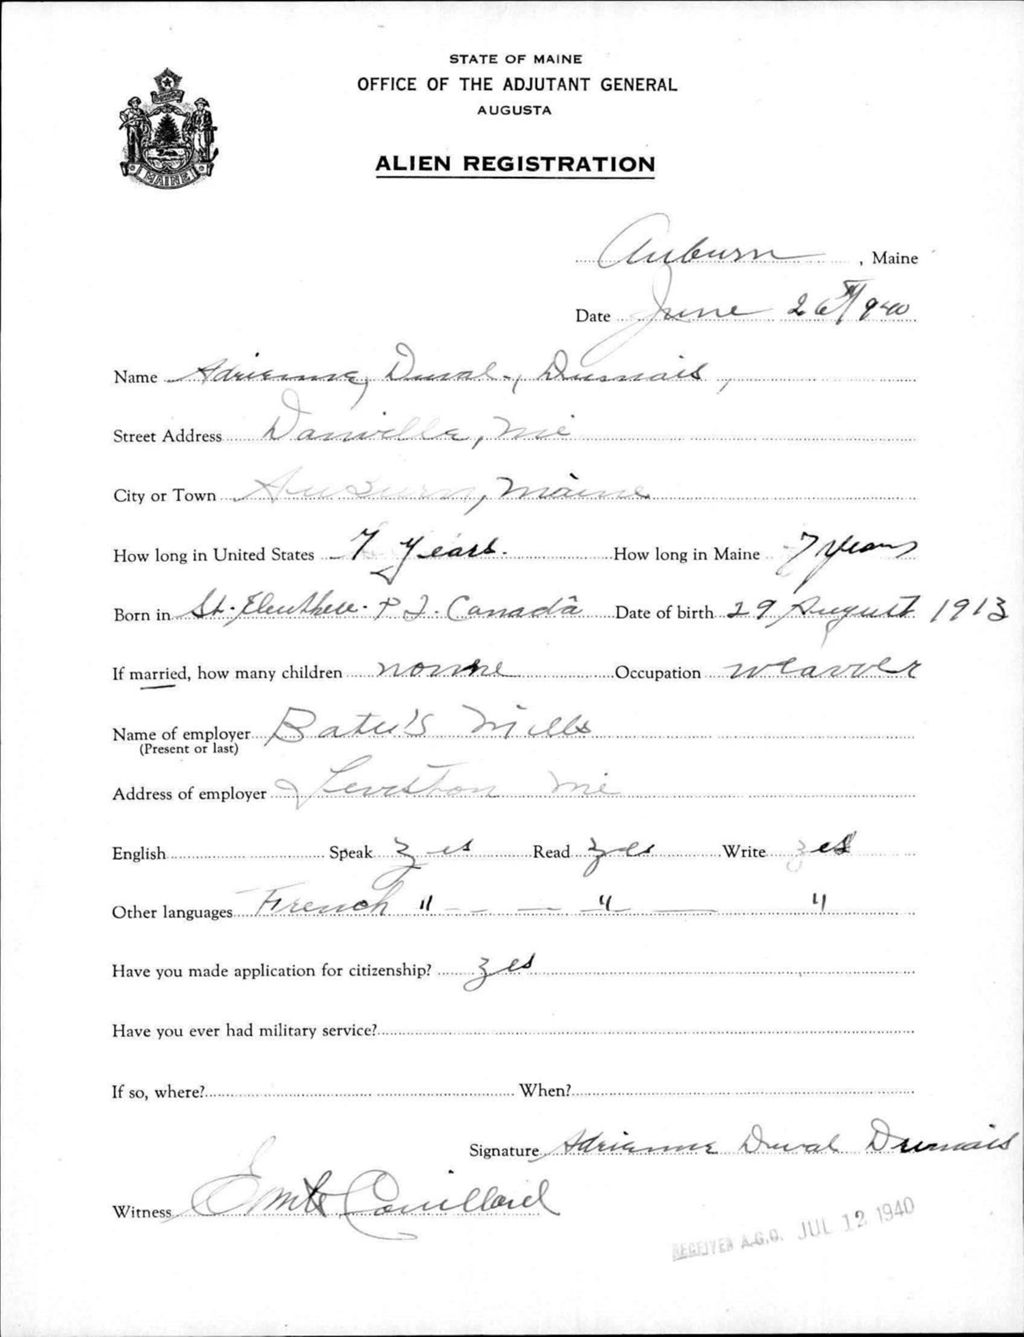 STATE OF MAINE
OFFICE OF THE ADJUTANT GENERAL
AUGUSTA
ALIEN REGISTRATION
MAINE
Auburn, Maine
Date June 26th 1940
Name Adrienne, Duval, Dumais,
Street Address Danville, Me
City or Town Auburn, Maine
How long in United States 7 Years. How long in Maine 7 years
Born in St. Eleuthere. P.Q. Canada Date of birth 29 August 1913
If married, how many children nonne Occupation weavver
Name of employer Bate's Mills
(Present or last)
Address of employer Leviston Me
English Speak yes Read yes Write yes
Other languages French " " "
Have you made application for citizenship? yes
Have you ever had military service?
If so, where? When?
Signature Adrienne Duval Dumais
Witness Couillard
RECEIVED A.G.O. JUL 12 1940